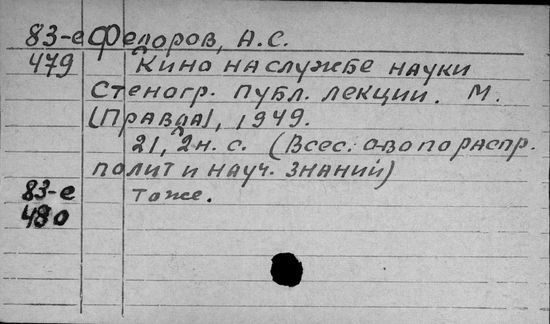 83-е Федоров, А.С.
479 Кино на службе науки
Стеногр. публ. лекции. М.
[Правда], 1949.
21, 2н. с. (Всес. о-во по распр.
полит и науч. знаний)
83-е То же.
480